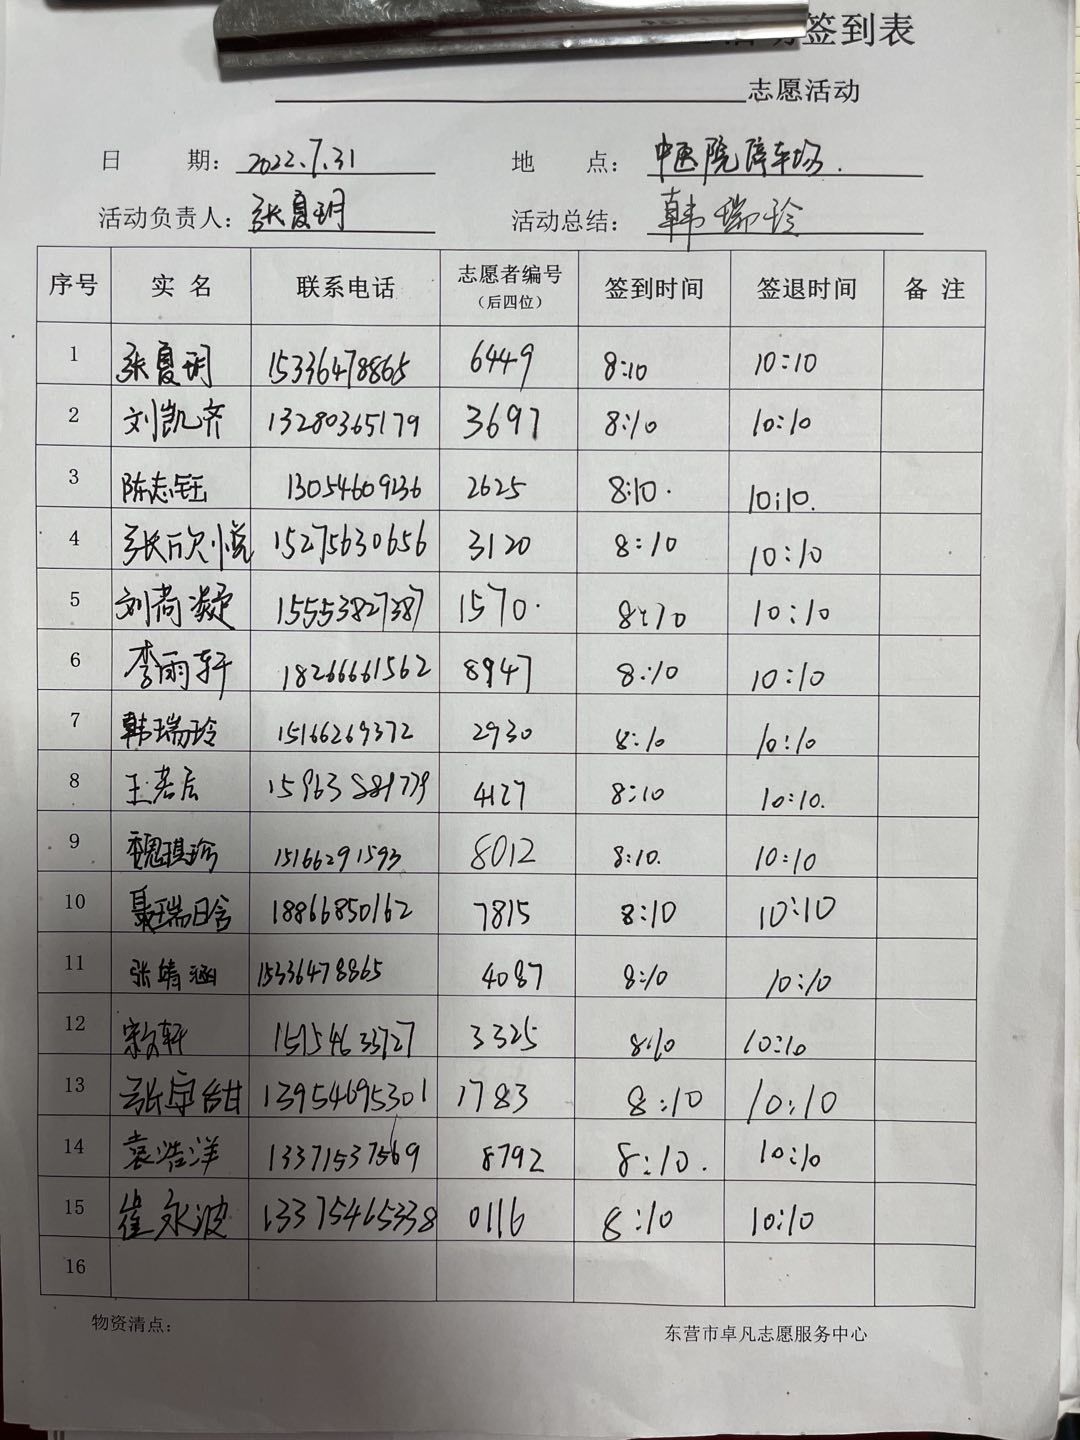 签到表
志愿活动
日 期： 2022.7.31 地 点： 中医院停车场.
活动负责人： 张夏玥 活动总结： 韩瑞玲
序号 实 名 联系电话 志愿者编号（后四位） 签到时间 签退时间 备 注
1 张夏玥 15336478865 6449 8:10 10:10
2 刘凯齐 13280365179 3697 8:10 10:10
3 陈志钰 13054609236 2625 8:10. 10:10.
4 张欣悦 15275630656 3120 8:10 10:10
5 刘尚凝 15553827387 1570. 8:10 10:10
6 李雨轩 18266661562 8947 8:10 10:10
7 韩瑞玲 15166269372 2930 8:10 10:10
8 王若辰 15963889779 4127 8:10 10:10.
9 魏琪珍 15166291593 8012 8:10. 10:10
10 聂瑞晗 18866850162 7815 8:10 10:10
11 张靖涵 15336478865 4087 8:10 10:10
12 轩 15154633727 3325 8:10 10:10
13 张宇甜 13954695301 1783 8:10 10:10
14 袁浩洋 13371537569 8792 8:10. 10:10
15 崔永波 13375465338 0116 8:10 10:10
16
物资清点： 东营市卓凡志愿服务中心